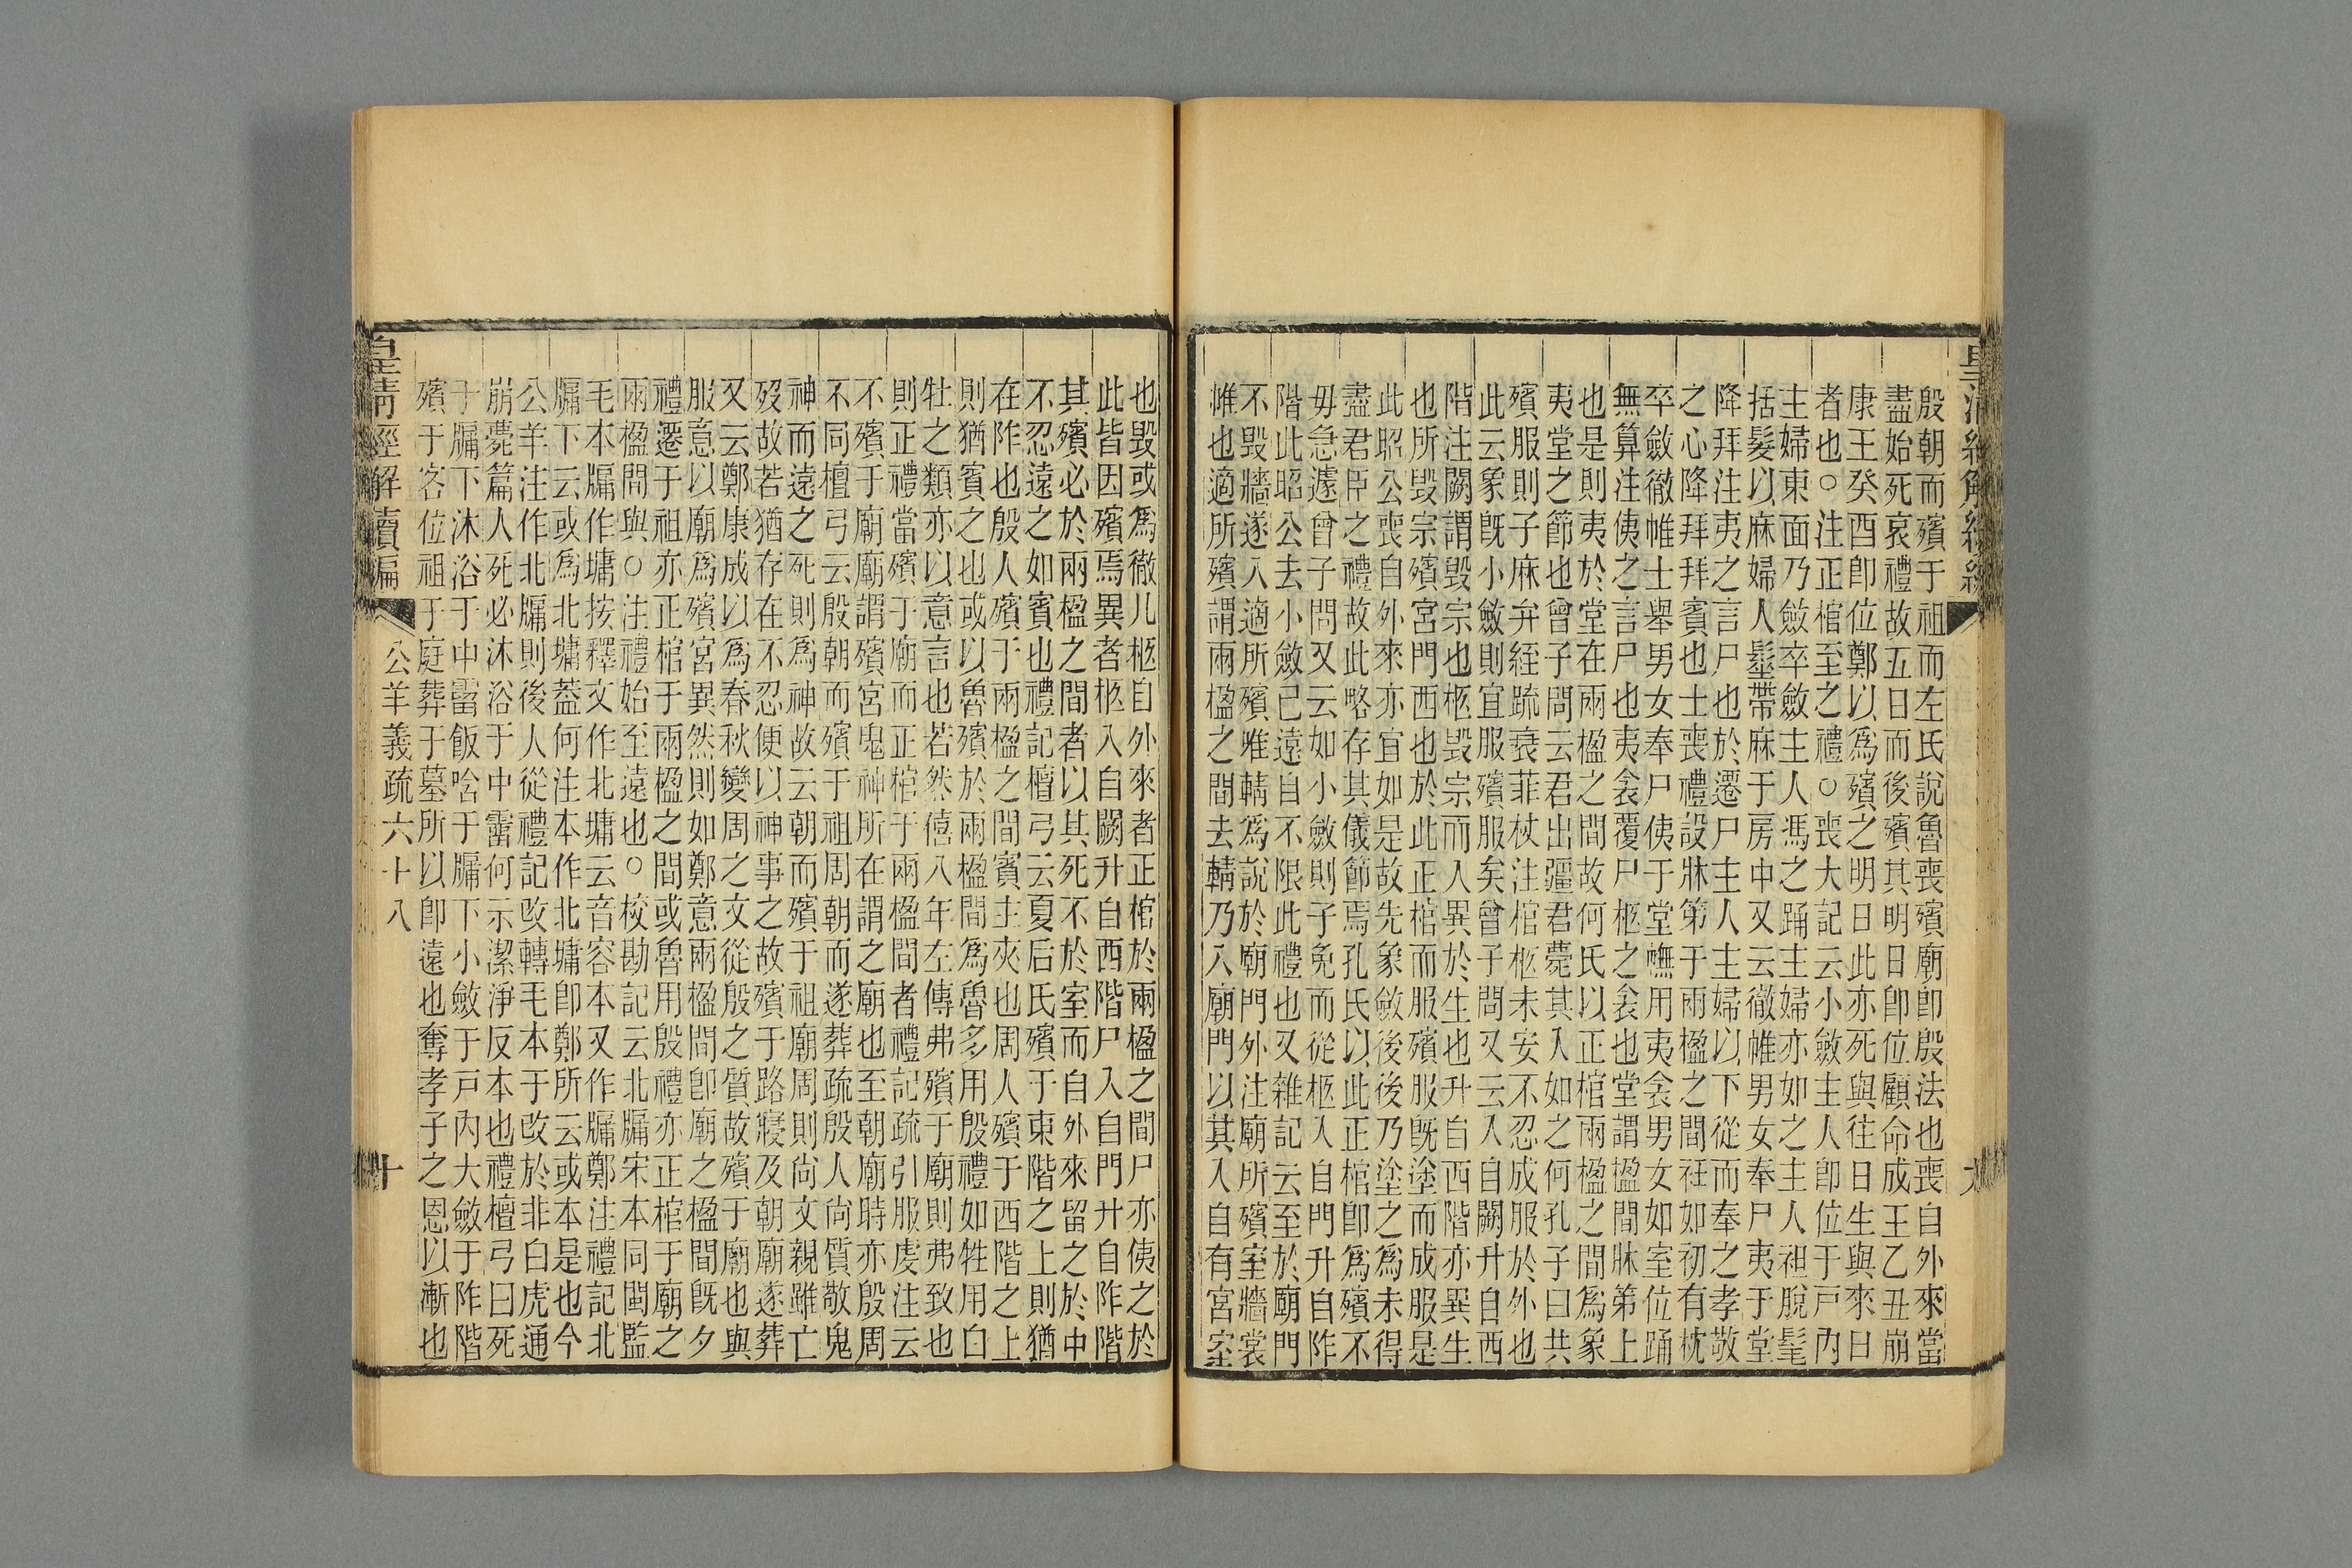 殷朝而殯于祖而左氏說魯喪殯廟卽殷法也喪自外來當
盡始死哀禮故五日而後殯其明日卽位顧命成王乙丑崩
康王癸酉卽位鄭以爲殯之明日此亦死與往日生與來日
者也○注正棺至之禮○喪大記云小斂主人卽位于戸內
主婦東面乃斂卒斂主人馮之踊主婦亦如之主人袒脫髦
括髮以麻婦人髽帶麻于房中又云徹帷男女奉尸夷于堂
降拜注夷之言尸也於遷尸主人主婦以下從而奉之孝敬
之心降拜拜賓也士喪禮設牀第于兩楹之間衽如初有枕
卒斂徹帷士舉男女奉尸侇于堂幠用夷衾男女如室位踊
無算注侇之言尸也夷衾覆尸柩之衾也堂謂楹間牀第上
也是則夷於堂在兩楹之間故何氏以正棺兩楹之間爲象
夷堂之節也曾子問云君出疆君薨其入如之何孔子曰共
殯服則子麻弁絰疏衰菲杖注棺柩未安不忍成服於外也
此云象旣小斂則宜服殯服矣曾子問又云入自闕升自西
階注闕謂毀宗也柩毀宗而入異於生也升自西階亦異生
也所毀宗殯宮門西也於此正棺而服殯服旣塗而成服是
此昭公喪自外來亦宜如是故先象斂後後乃塗之爲未得
盡君臣之禮故此略存其儀節焉孔氏以此正棺卽爲殯不
毋急遽曾子問又云如小斂則子免而從柩入自門升自阼
階此昭公去小斂已遠自不限此禮也又雜記云至於廟門
不毀牆遂入適所殯唯輤爲說於廟門外注廟所殯室牆裳
帷也適所殯謂兩楹之間去輤乃入廟門以其入自有宮室
也毀或爲徹凡柩自外來者正棺於兩楹之間尸亦侇之於
此皆因殯焉異者柩入自闕升自西階尸入自門升自阼階
其殯必於兩楹之間者以其死不於室而自外來留之於中
不忍遠之如賓也禮記檀弓云夏后氏殯于東階之上則猶
在阼也殷人殯于兩楹之間賓主夾也周人殯于西階之上
則猶賓之也或以魯殯於兩楹間爲魯多用殷禮如牲用白
牡之類亦以意言也若然僖八年左傳弗殯于廟則弗致也
則正禮當殯于廟而正棺于兩楹間者禮記疏引服虔注云
不殯于廟廟謂殯宮鬼神所在謂之廟也至朝廟時亦殷周
不同檀弓云殷朝而殯于祖周朝而遂葬疏殷人尙質敬鬼
神而遠之死則爲神故云朝而殯于祖廟周則尙文親雖亡
歿故若猶存在不忍便以神事之故殯于路寢及朝廟遂葬
又云鄭康成以爲春秋變周之文從殷之質故殯于廟也與
服意以廟爲殯宮異然則如鄭意兩楹間卽廟之楹間旣夕
禮遷于祖亦正棺于兩楹之間或魯用殷禮亦正棺于廟之
兩楹間與○注禮始至遠也○校勘記云北牖牖宋本同閩監
毛本牖作墉按釋文作北墉云音容本又作牖鄭注禮記北
牖下云或爲北墉蓋何注本作北墉卽鄭所云或本是也今
公羊注作北牖則後人從禮記改轉毛本于改於非白虎通
崩薨篇人死必沐浴于中霤何示潔淨反本也禮檀弓曰死
于牖下沐浴于中霤飯唅于牖下小斂于戸內大斂于阼階
殯于客位祖于庭葬于墓所以卽遠也奪孝子之恩以漸也
皇淸經解續編
公羊義疏六十八
十